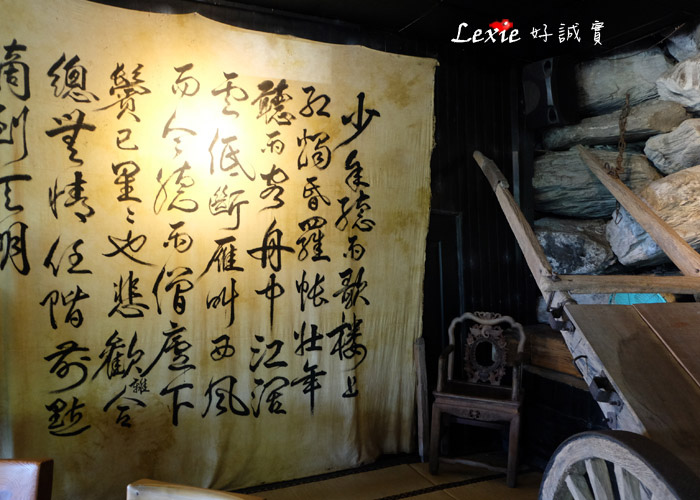 Lexie 好誠實
少年聽雨歌樓上
紅燭昏羅帳壯年
聽雨客舟中江闊
雲低斷雁叫西風
而今聽雨僧廬下
鬢已星〻也悲歡離合
總無情任階前點
滴到天明